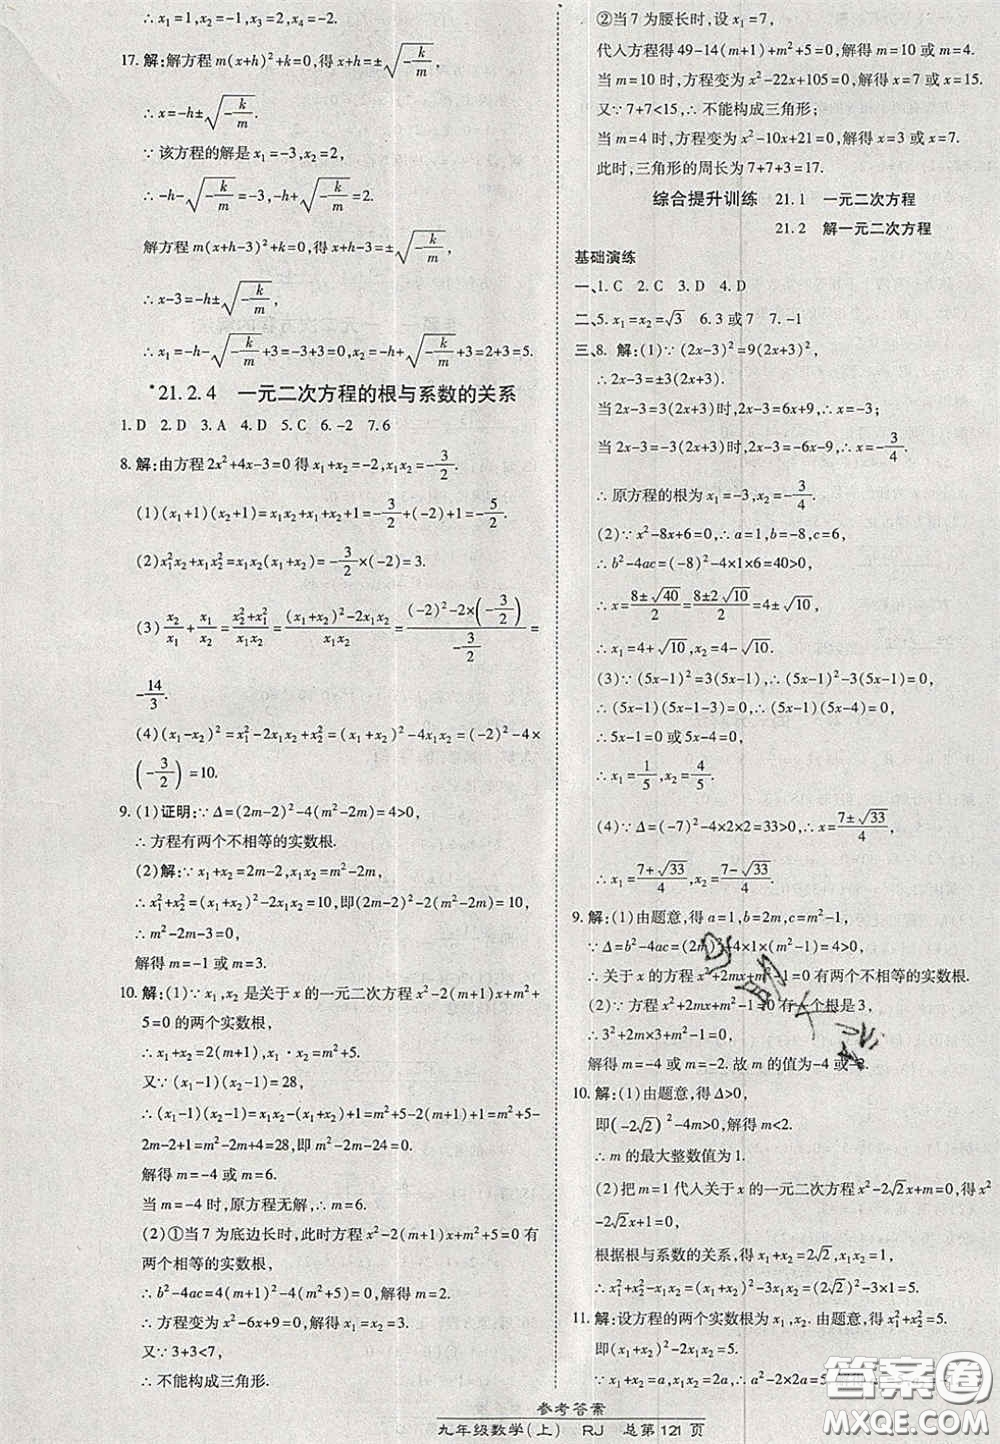 ∴ x₁=1,x₂=-1,x₃=2,x₄=-2.
17. 解:解方程 m(x+h)²+k=0,得 x+h=±√(-k/m)
∴ x=-h±√(-k/m).
∵ 该方程的解是 x₁=-3,x₂=2,
∴ -h-√(-k/m)=-3,-h+√(-k/m)=2,
解方程 m(x+h-3)²+k=0,得 x+h-3=±√(-k/m),
∴ x-3=-h±√(-k/m),
∴ x₁=-h-√(-k/m)+3=-3+3=0,x₂=-h+√(-k/m)+3=2+3=5.
*21.2.4 一元二次方程的根与系数的关系
1. D 2. D 3. A 4. D 5. C 6. -2 7. 6
8. 解:由方程 2x²+4x-3=0 得 x₁+x₂=-2,x₁x₂=-3/2.
(1)(x₁+1)(x₂+1)=x₁x₂+x₁+x₂+1=-3/2+(-2)+1=-5/2.
(2)x₁²x₂+x₁x₂²=x₁x₂(x₁+x₂)=-3/2×(-2)=3.
(3)x₂/x₁+x₁/x₂=(x₂²+x₁²)/(x₁x₂)=((x₁+x₂)²-2x₁x₂)/(x₁x₂)=((-2)²-2×(-3/2))/(-3/2)=
-14/3.
(4)(x₁-x₂)²=x₁²-2x₁x₂+x₂²=(x₁+x₂)²-4x₁x₂=(-2)²-4×
(-3/2)=10.
9. (1)证明:∵ Δ=(2m-2)²-4(m²-2m)=4>0,
∴ 方程有两个不相等的实数根.
(2)解:∵ x₁+x₂=-(2m-2),x₁x₂=m²-2m,
∴ x₁²+x₂²=(x₁+x₂)²-2x₁x₂=10,即(2m-2)²-2(m²-2m)=10,
∴ m²-2m-3=0,
解得 m=-1 或 m=3.
10. 解:(1)∵ x₁,x₂ 是关于 x 的一元二次方程 x²-2(m+1)x+m²+
5=0 的两个实数根,
∴ x₁+x₂=2(m+1),x₁·x₂=m²+5.
又∵ (x₁-1)(x₂-1)=28,
∴ (x₁-1)(x₂-1)=x₁·x₂-(x₁+x₂)+1=m²+5-2(m+1)+1=m²+5-
2m-2+1=m²-2m+4=28,∴ m²-2m-24=0.
解得 m=-4 或 m=6.
当 m=-4 时,原方程无解,∴ m=6.
(2)①当 7 为底边长时,此时方程 x²-2(m+1)x+m²+5=0 有
两个相等的实数根,
∴ b²-4ac=4(m+1)²-4(m²+5)=0,解得 m=2.
∴ 方程变为 x²-6x+9=0,解得 x₁=x₂=3.
又∵ 3+3<7,
∴ 不能构成三角形.
②当 7 为腰长时,设 x₁=7,
代入方程得 49-14(m+1)+m²+5=0,解得 m=10 或 m=4.
当 m=10 时,方程变为 x²-22x+105=0,解得 x=7 或 x=15.
又∵ 7+7<15,∴ 不能构成三角形;
当 m=4 时,方程变为 x²-10x+21=0,解得 x=3 或 x=7.
此时,三角形的周长为 7+7+3=17.
综合提升训练 21.1 一元二次方程
21.2 解一元二次方程
基础演练
一、1. C 2. C 3. D 4. D
二、5. x₁=x₂=√3 6. 3 或 7 7. -1
三、8. 解:(1)∵ (2x-3)²=9(2x+3)²,
∴ 2x-3=±3(2x+3).
当 2x-3=3(2x+3)时,2x-3=6x+9,∴ x=-3;
当 2x-3=-3(2x+3)时,2x-3=-6x-9,∴ x=-3/4.
∴ 原方程的根为 x₁=-3,x₂=-3/4.
(2)∵ x²-8x+6=0,∴ a=1,b=-8,c=6,
∴ b²-4ac=(-8)²-4×1×6=40>0,
∴ x=(8±√40)/2=(8±2√10)/2=4±√10,
∴ x₁=4+√10,x₂=4-√10.
(3)∵ (5x-1)²-3(5x-1)=0,
∴ (5x-1)(5x-1-3)=0,∴ (5x-1)(5x-4)=0,
∴ 5x-1=0 或 5x-4=0,
∴ x₁=1/5,x₂=4/5.
(4)∵ Δ=(-7)²-4×2×2=33>0,∴ x=(7±√33)/4,
∴ x₁=(7+√33)/4,x₂=(7-√33)/4.
9. 解:(1)由题意,得 a=1,b=2m,c=m²-1,
∵Δ=b²-4ac=(2m)²-4×1×(m²-1)=4>0,
∴ 关于 x 的方程 x²+2mx+m²-1=0 有两个不相等的实数根.
(2)∵ 方程 x²+2mx+m²-1=0 有一个根是 3,
∴ 3²+2m×3+m²-1=0,
解得 m=-4 或 m=-2. 故 m 的值为-4 或-2.
10. 解:(1)由题意,得 Δ>0,
即(-2√2)²-4m>0,解得 m<2.
∴ m 的最大整数值为 1.
(2)把 m=1 代入关于 x 的一元二次方程 x²-2√2x+m=0,得 x²
-2√2x+1=0,
根据根与系数的关系,得 x₁+x₂=2√2,x₁x₂=1,
∴ x₁²+x₂²-x₁x₂=(x₁+x₂)²-3x₁x₂=(2√2)²-3×1=5.
11. 解:设方程的两个实数根为 x₁,x₂. 由题意,得 x₁²+x₂²=5.
即(x₁+x₂)²-2x₁x₂=5.
∵ x₁+x₂=a,x₁x₂=2a,∴ a²-2×2a=5,即 a²-4a-5=0.
参考答案
九年级数学(上) RJ 总第 121 页
答案圈
MXQE.COM